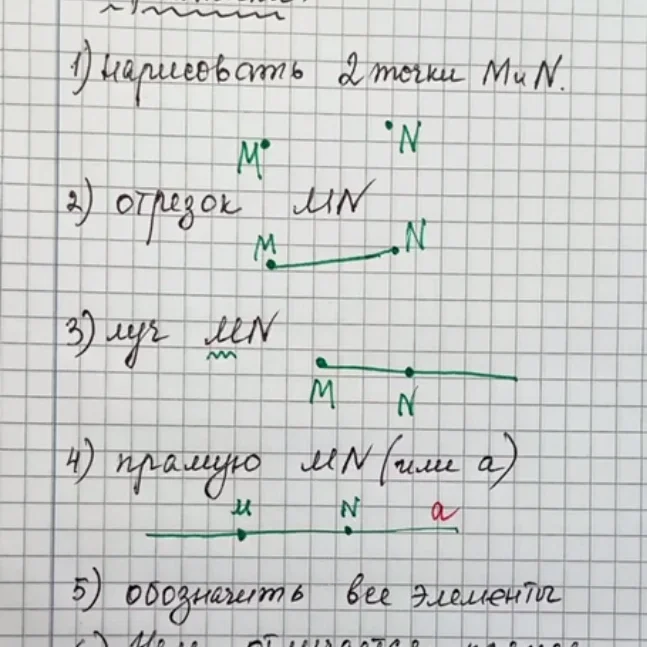 1) нарисовать 2 точки М и N.
М N
2) отрезок MN
М N
3) луч MN
М N
4) прямую MN (или а)
м N а
5) обозначить все элементы